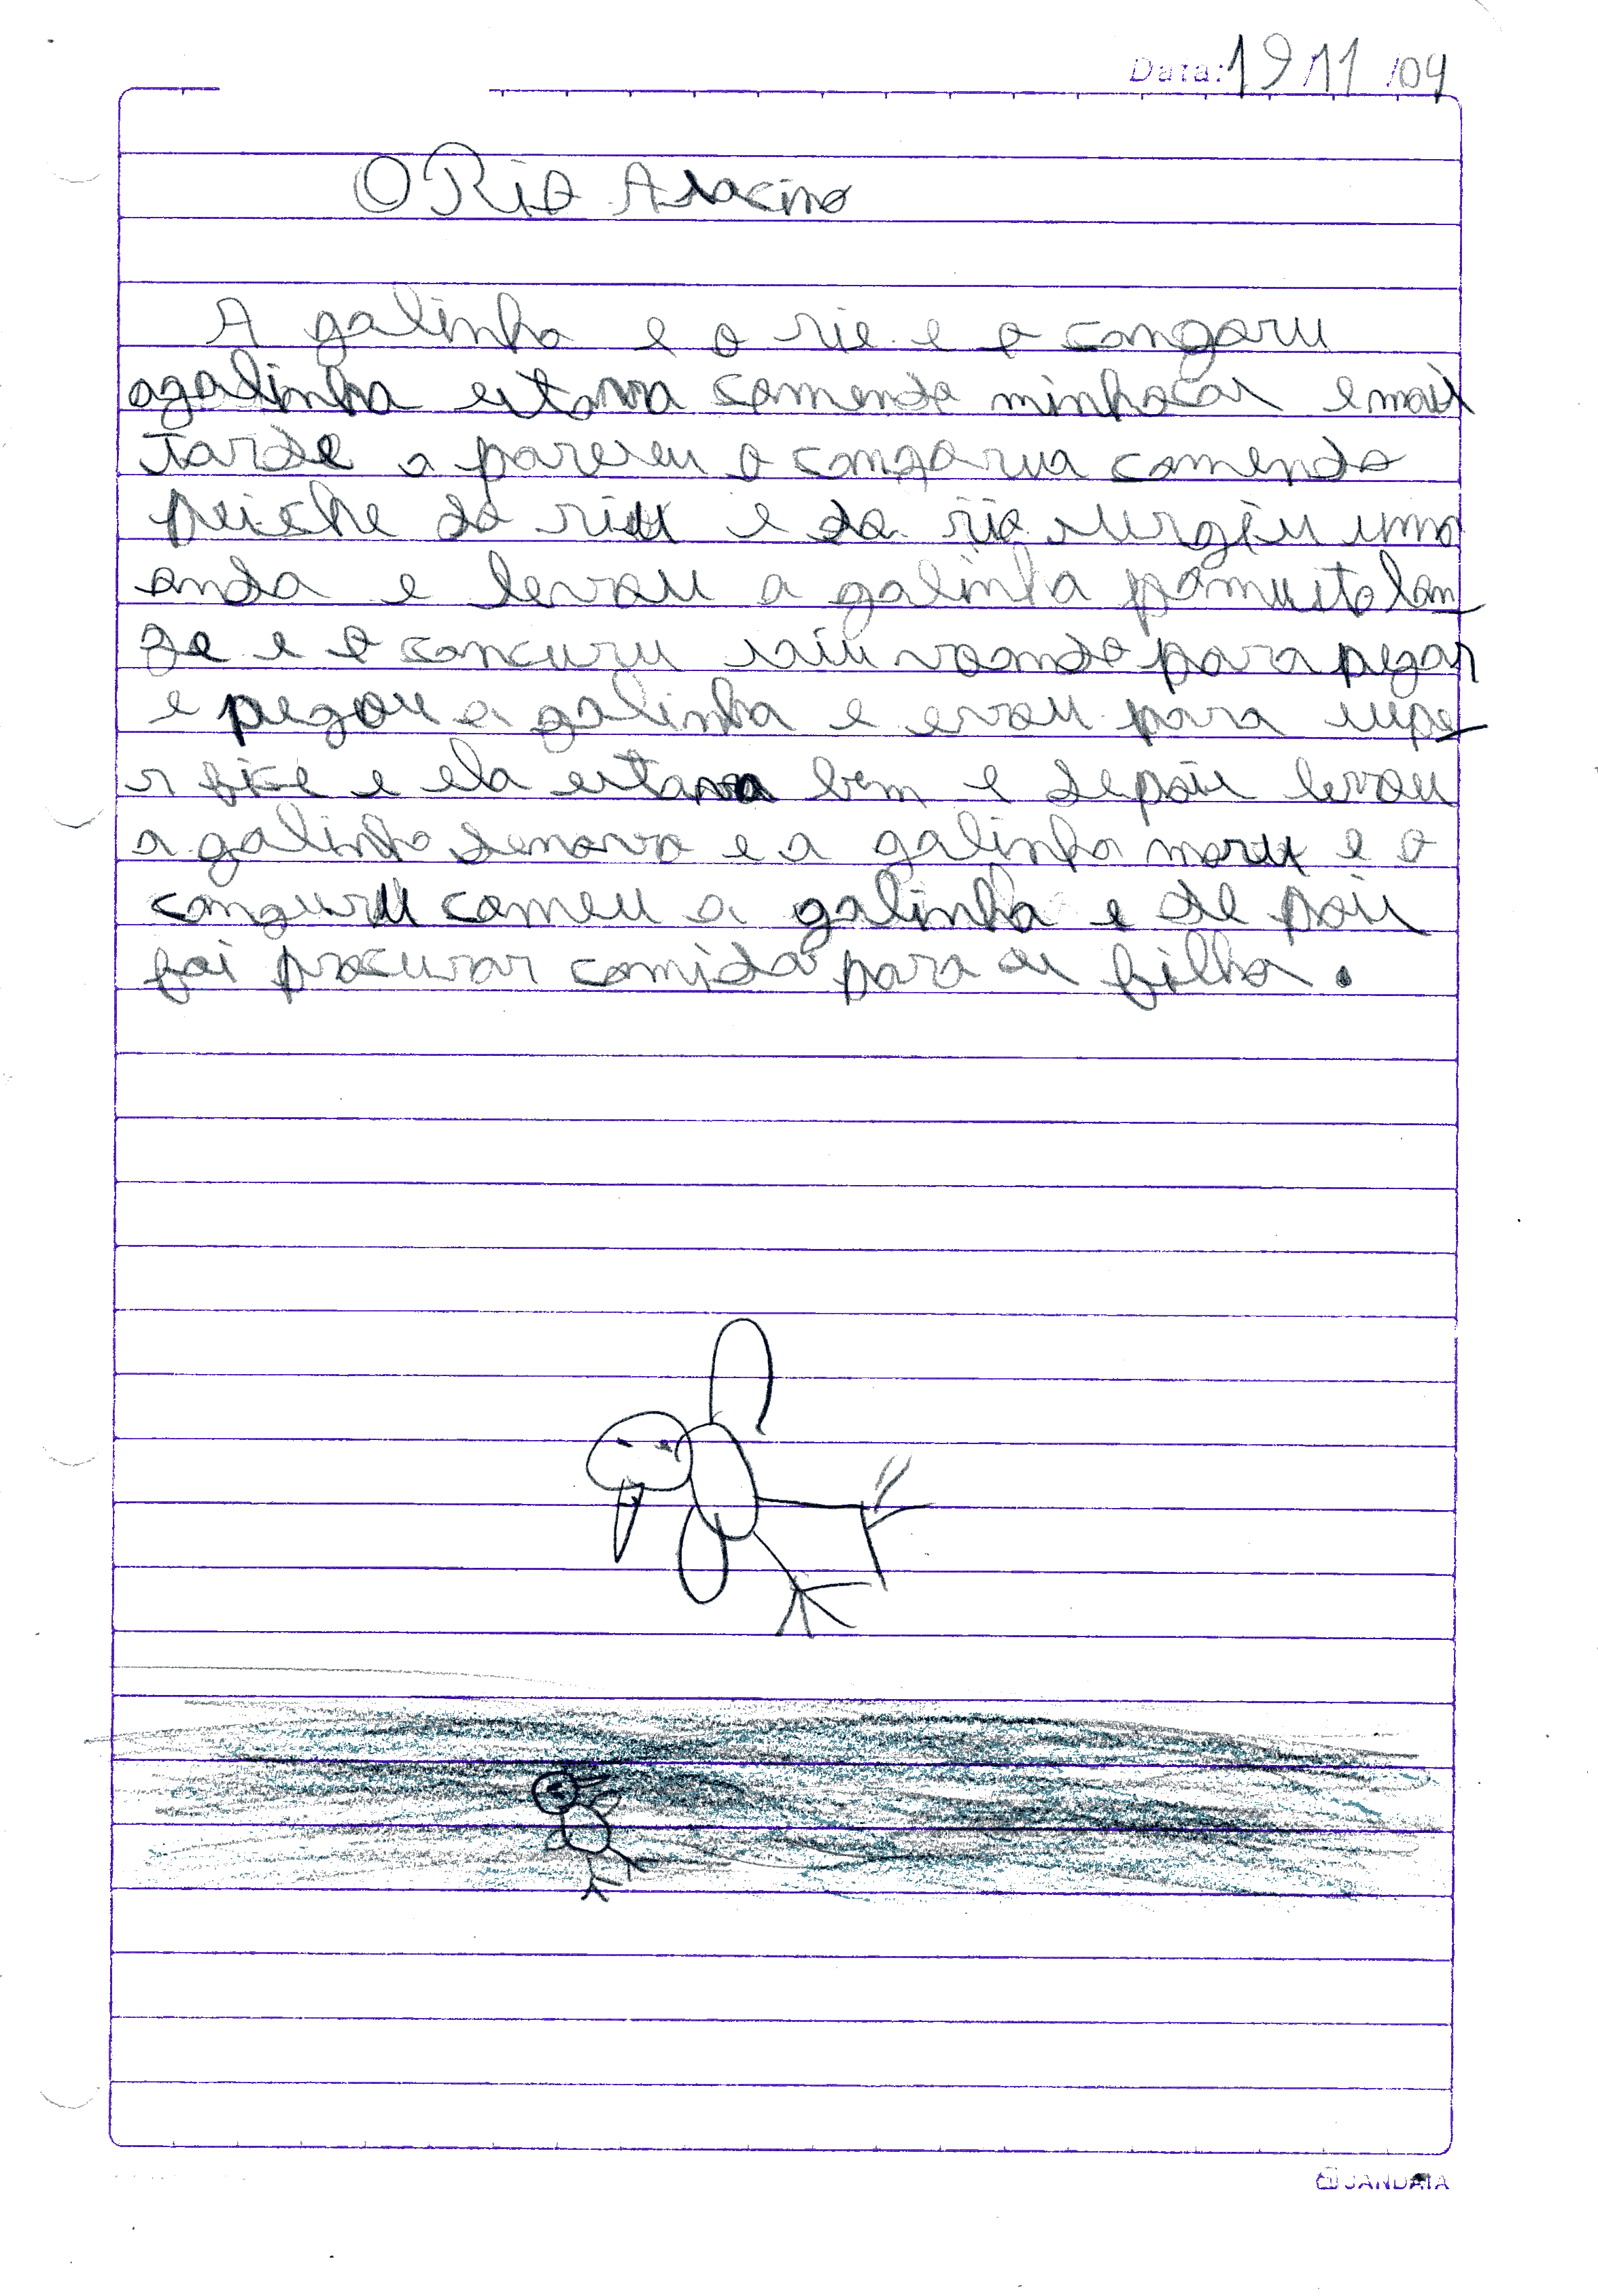 Data: 19/11/04
O Rio Asacino
A galinha e o rio e o congaru
agalinha estava comendo minhocas e mais
Tarde a pareseu o congarua comendo
peiche do riu e do rio surgiu uma
onda e levou a galinha
ge e o concuru saiu voando para pegar
e pegou a galinha e evou para supe-
r fise e ela estava bem e depois levou
a galinha denovo e a galinha moru e o
conguru comeu a galinha e de pois
foi procurar comida para os filhos.
JANDAIA